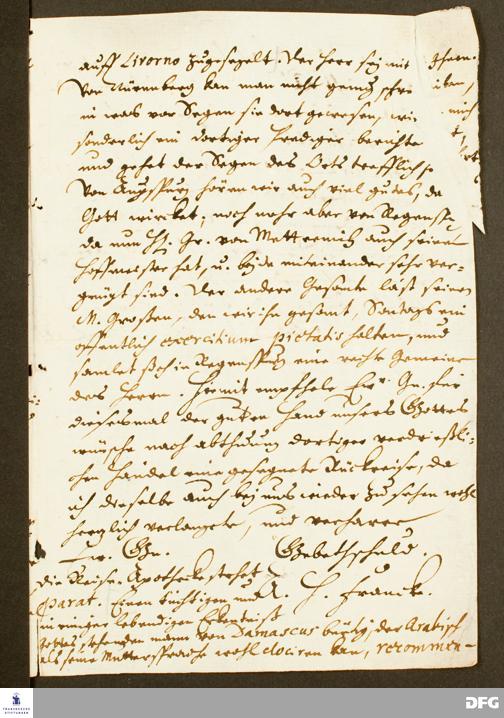 auff Livorno zugesegelt. Der Herr sey mit Ihnen.
Von Nürnberg kan man nicht genug schrei
in was vor Segen sie dort gewesen, wie
sonderlich ein dortiger Prediger berichtet
und gehet der Segen des Orts trefflich
Von Augspurg hören wir auch viel gutes, da
Gott wircket; noch mehr aber von Regenspu
da nun H. Gr. von Metternich auch seinen
Hoffmeister hat, u. beyde miteinander sehr ver-
gnügt sind. Der andere Gesante läst seinen
M. Großen, den wir ihm gesant, Sontags ein
offentlich exercitium pietatis halten, und
samlet sich in Regenspurg eine rechte Gemeine
des Herrn. Hiemit empfehle Ewr. Gn. für
diesesmal der guten Hand unsers Gottes
wünsche nach abthuung dortiger verdrießli-
chen Händel eine gesegnete Rückreise, da
ich dieselbe auch bey uns wieder zu sehen wohl
hertzlich verlangete, und verharre
Ew. Gn. Gebethschuld.
Die Reise-Apothecke stehet A. H. Francke.
parat. Einen tüchtigen und
in einiger lebendigen Erkentniß
Gottes stehenden mann von Damascus bürtig, der Arabisch
als seine Muttersprache wohl dociren kan, recommen-
FRANCKESCHE STIFTUNGEN
DFG